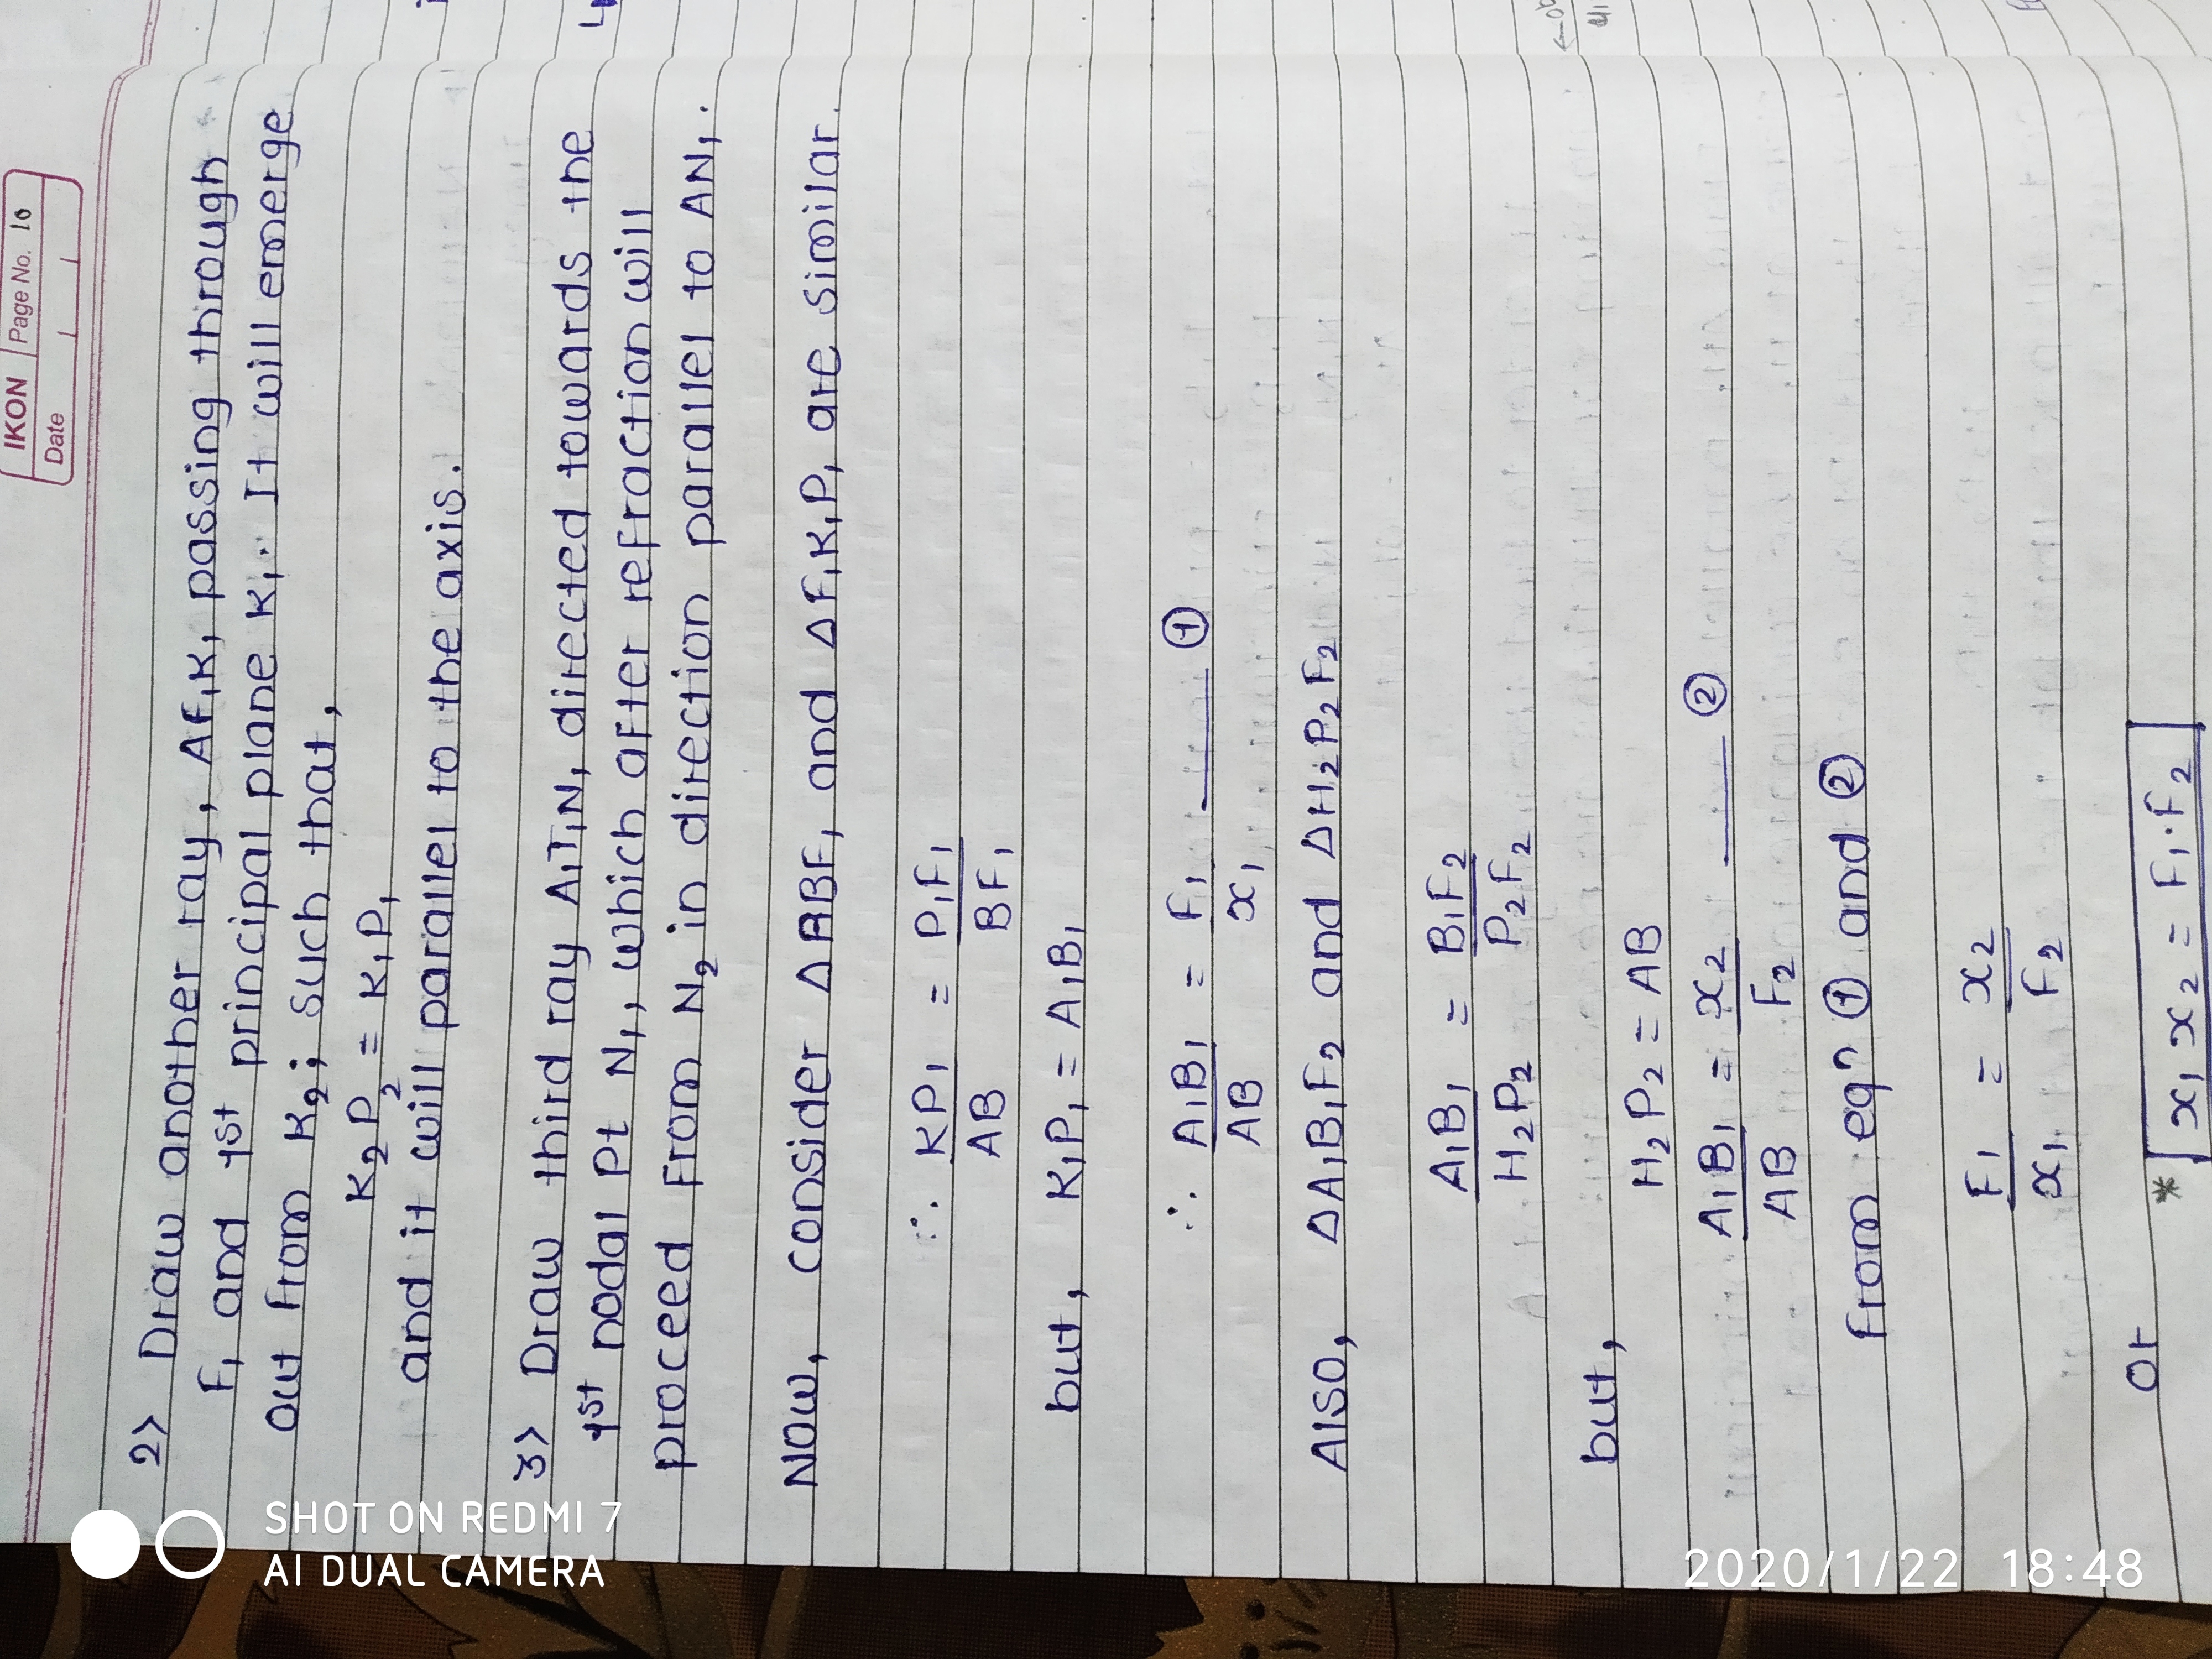 IKON Page No. 10
Date
2> Draw another ray, AF₁K₁ passing through
F₁ and 1st principal plane K₁. It will emerge
out from K₂; such that,
K₂P₂ = K₁P₁
and it will parallel to the axis.
3> Draw third ray A₁T₁N₁ directed towards the
1st nodal Pt N₁, which after refraction will
proceed from N₂ in direction parallel to AN₁.
Now, consider △ABF₁ and △F₁K₁P₁ are similar.
∴ KP₁/AB = P₁F₁/BF₁
but, K₁P₁ = A₁B₁
∴ A₁B₁/AB = F₁/x₁ ——— ①
Also, △A₁B₁F₂ and △H₂P₂F₂
A₁B₁/H₂P₂ = B₁F₂/P₂F₂
but,
H₂P₂ = AB
A₁B₁/AB = x₂/F₂ ——— ②
From eqn ① and ②
F₁/x₁ = x₂/F₂
or
* x₁ x₂ = F₁·F₂
SHOT ON REDMI 7
AI DUAL CAMERA
2020/1/22 18:48